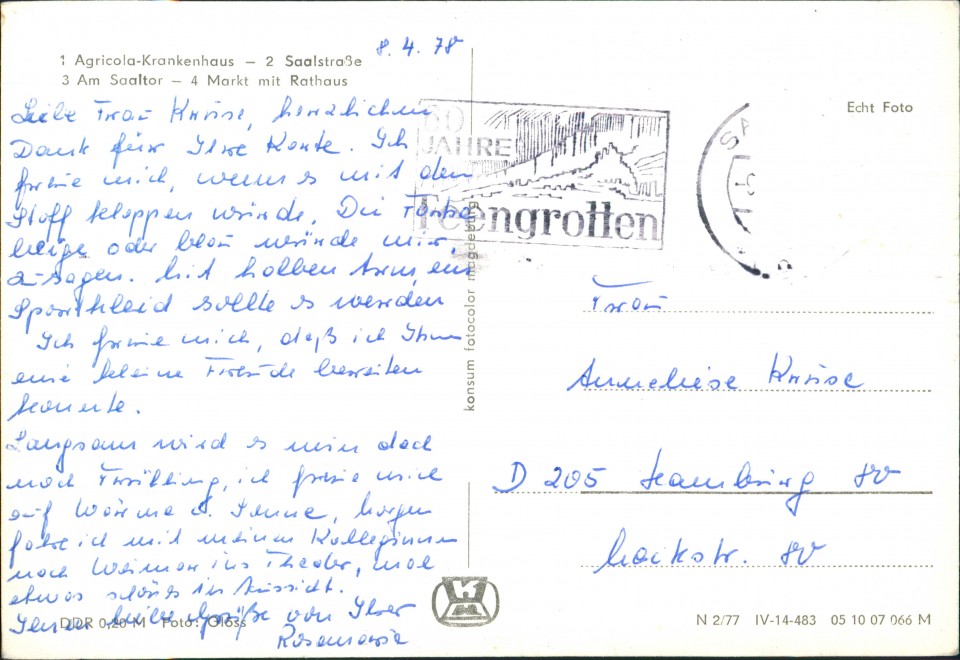 8. 4. 78
1 Agricola-Krankenhaus — 2 Saalstraße
3 Am Saaltor — 4 Markt mit Rathaus
Liebe Frau Kruse, herzlichen
Dank für Ihre Karte. Ich
freue mich, wenn es mit dem
Stoff klappen würde. Die Farbe
beige oder blau würde mir
zusagen. Mit halben Arm, ein
Sportkleid sollte es werden
Ich freue mich, daß ich Ihnen
eine kleine Freude bereiten
konnte.
Langsam wird es nun doch
noch Frühling, ich freue mich
auf Wärme u. Sonne, morgen
fahre ich mit meinen Kolleginnen
nach Weimar ins Theater, mal
etwas schönes in Aussicht.
Ihnen liebe Grüße von Ihrer
Rosemarie
DDR 0,20 M Foto: Gloss
konsum fotocolor magdeburg
60
JAHRE
Feengrotten
SA
Echt Foto
Frau
Anneliese Kruse
D 205 Hamburg 80
80
N 2/77 IV-14-483 05 10 07 066 M